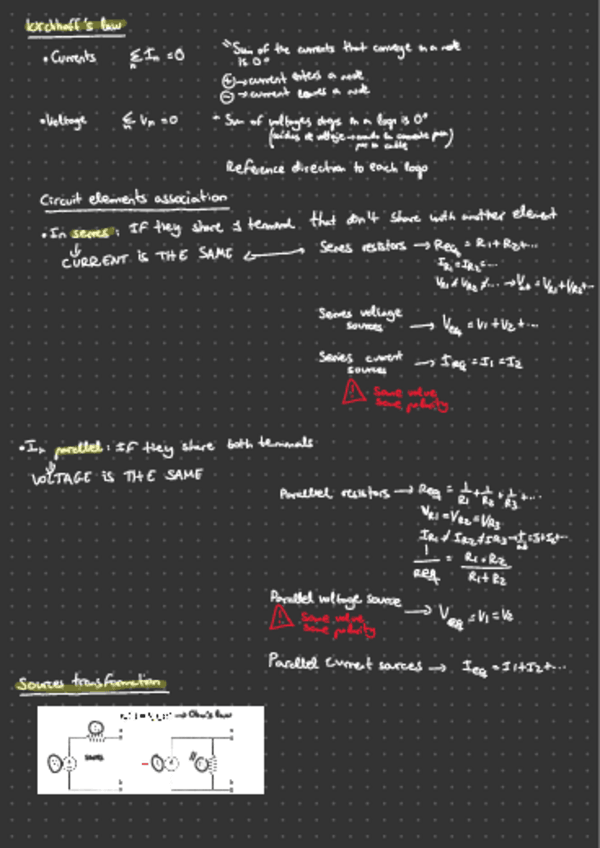 Kirchhoff's law
• Currents Σ In = 0 "Sum of the currents that converge in a node is 0"
n
⊕ → current enters a node
⊖ → current leaves a node
• Voltage Σ Vn = 0 "Sum of voltages drops in a loop is 0"
n
Reference direction to each loop
Circuit elements association
• In series: IF they share 1 terminal that don't share with another element
CURRENT IS THE SAME
Series resistors → Req = R1 + R2 + ...
IR1 = IR2 = ...
VR1 ≠ VR2 ≠ ... → = VR1 + VR2 + ...
Series voltage sources → Veq = V1 + V2 + ...
Series current sources → Ieq = I1 = I2
! Same value
same polarity
• In parallel: IF they share both terminals
VOLTAGE IS THE SAME
Parallel resistors → Req = 1/R1 + 1/R2 + 1/R3 + ...
VR1 = VR2 = VR3
IR1 ≠ IR2 ≠ IR3 →
1/Req = R1 + R2 / R1 + R2
Parallel voltage source → Veq = V1 = V2
! Same value
same polarity
Parallel current sources → Ieq = I1 + I2 + ...
Sources transformation
Ohm's law
series